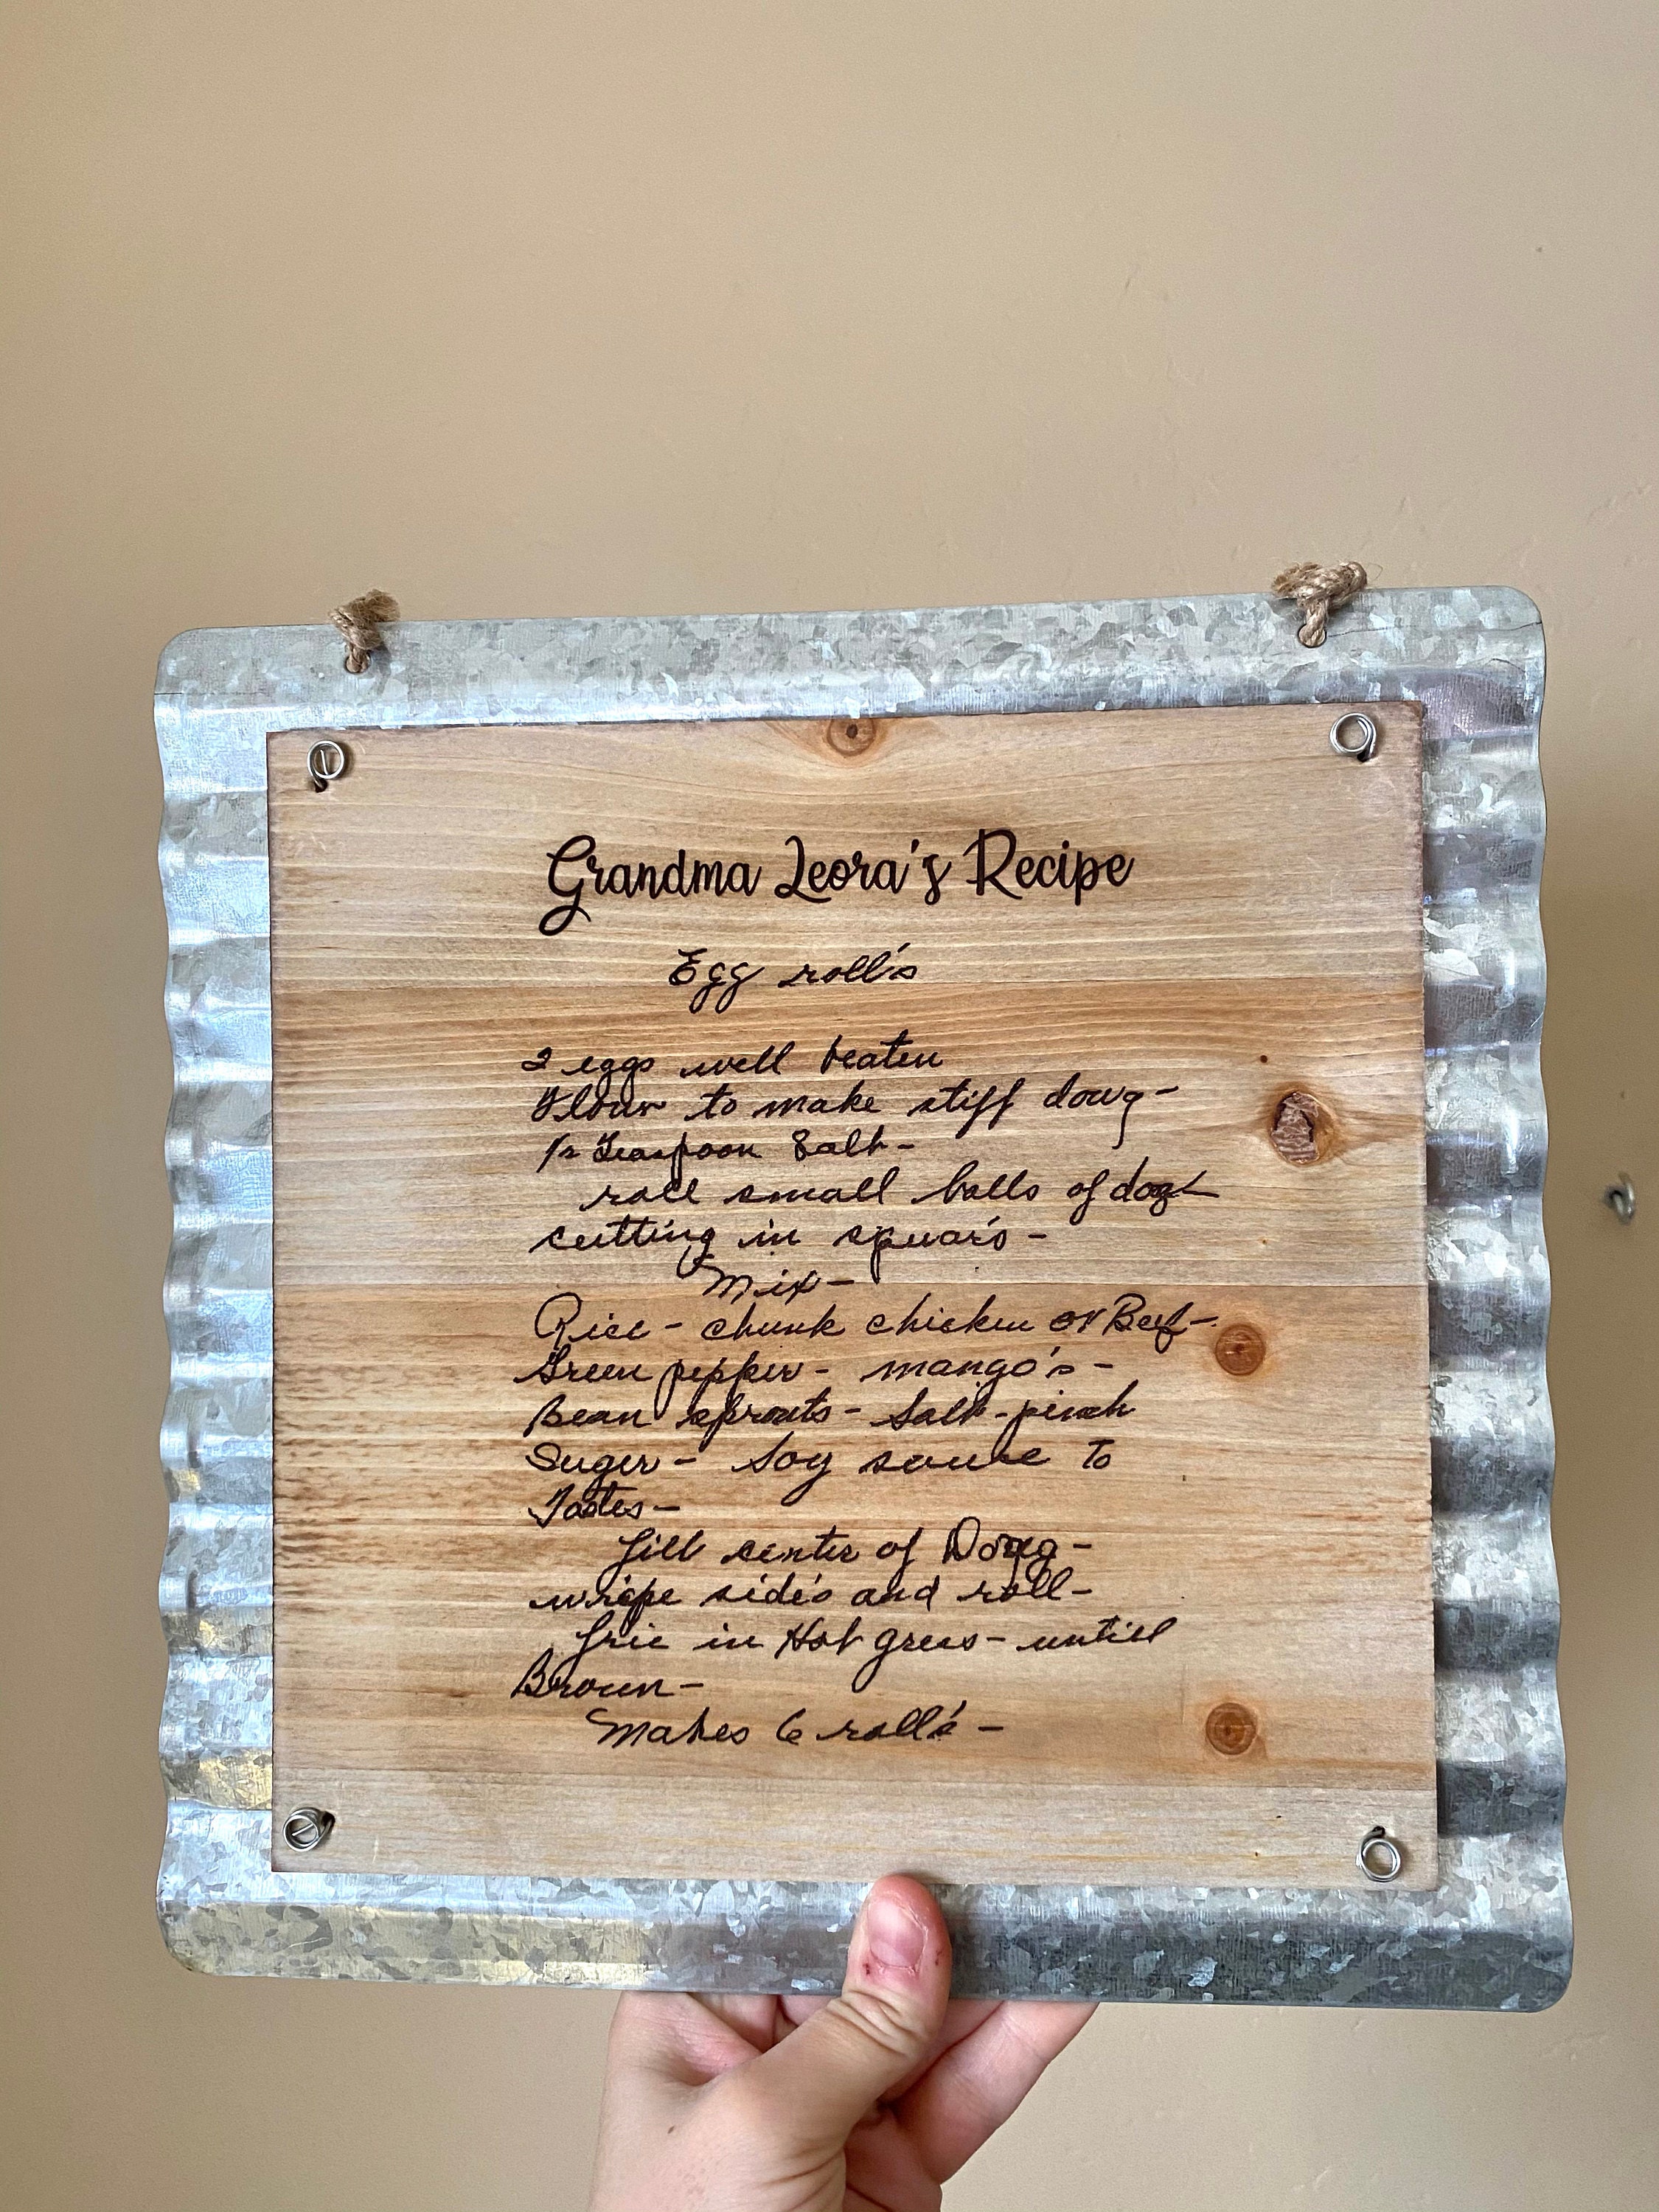 Grandma Leora's Recipe
Egg roll's
2 eggs well beaten
Flour to make stiff doug-
1/2 Teaspoon Salt-
roll small balls of dog-
cutting in squar's-
Mix-
Rice- chunk chicken or Beef-
Green pepper- mango's-
Bean sprouts- Salt-pinch
Suger- Soy sause to
Tastes-
fill center of Doug-
wripe side's and roll-
frie in Hot greas- untill
Broun-
Makes 6 roll's-